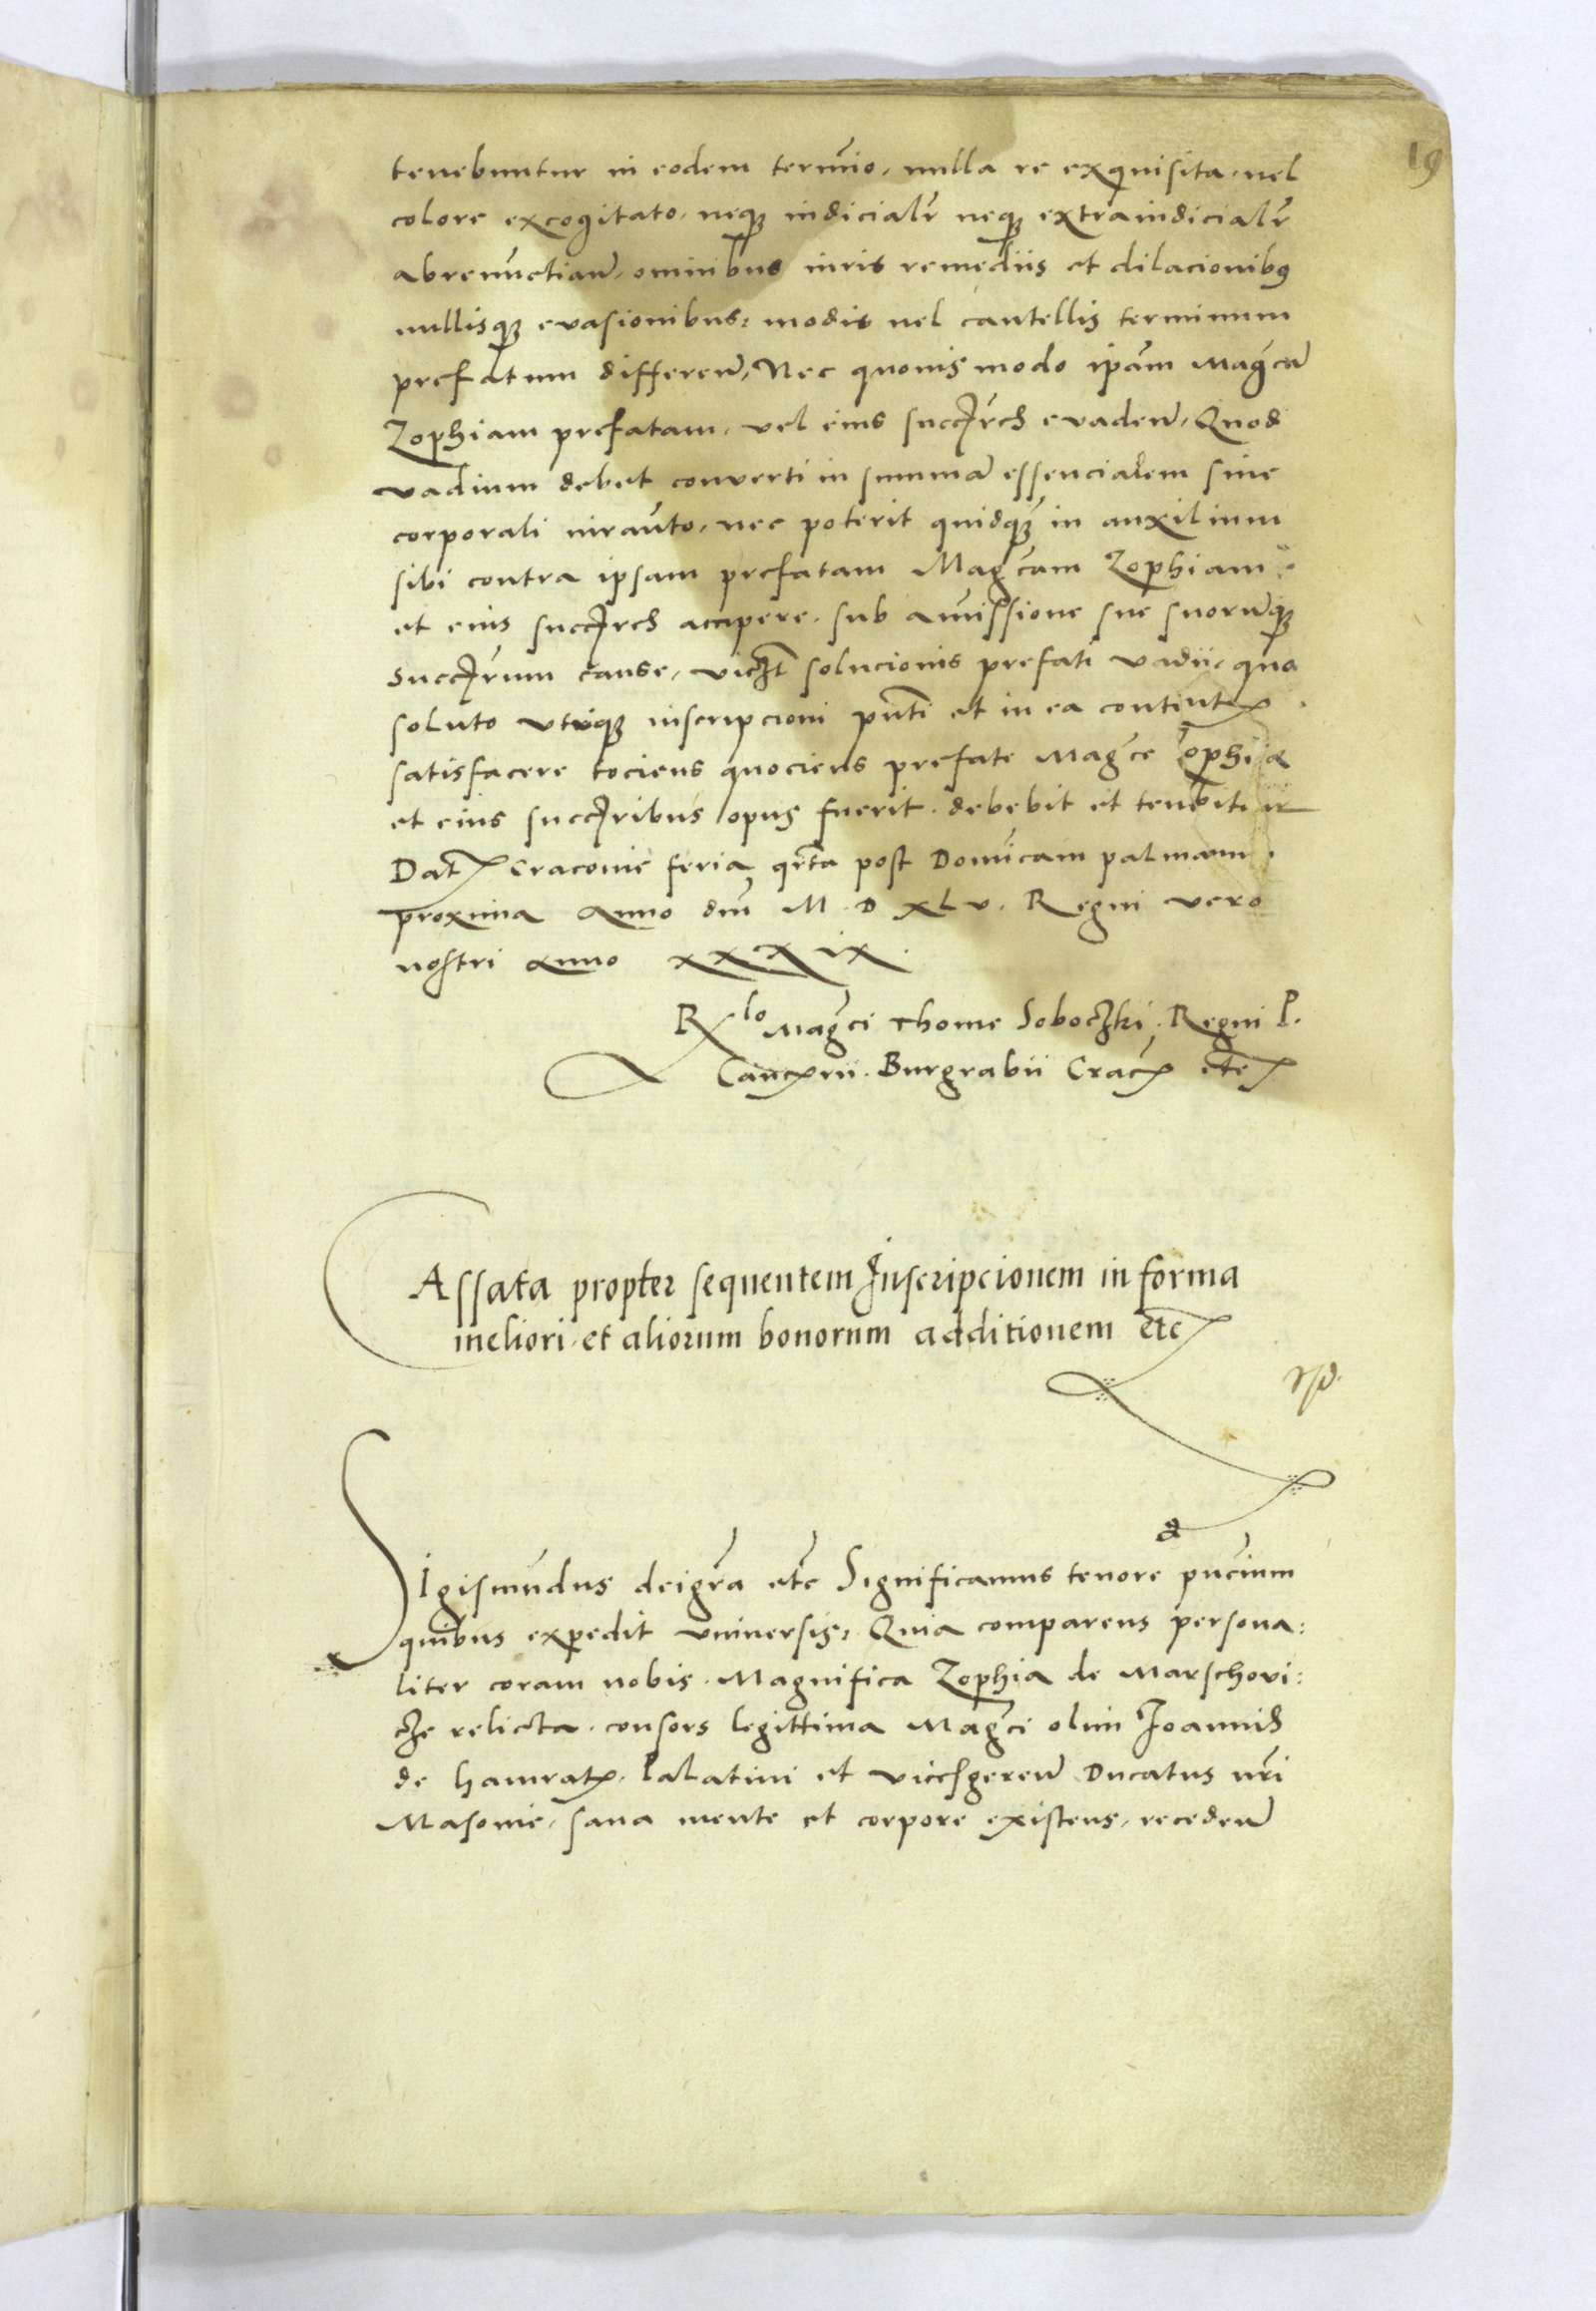 19
tenebuntur in eodem termĩo, nulla re exquisita, uel
colore excogitato, neqꝫ iudicialr̃ neqꝫ extraiudicialr̃
abrenũctiañ, omnibus iuris remediis et dilacionibꝯ
nullisqꝫ euasionibus, modis uel cautellis terminum
prefatum differeñ, Nec quouis modo ipãm Magcã
Zophiam prefatam, vel eius succr̃es euadeñ, Quod
vadium debet conuerti in summã essencialem siue
corporali iurañto, nec poterit quidqꝫ in auxilium
sibi contra ipsam prefatam Magc̃am Zophiam
et eius succr̃es accipere, sub amissione sue suorũqꝫ
succr̃rum cause, viczt solucionis prefati vadii, quo
soluto vtiqꝫ inscripcioni pñti et in ea content̃
satisfacere tociens quociens prefate Magc̃e Zophia
et eius succribus opus fuerit, debebit et tenebitur
Dat̃ Cracouie feria qrta post Domĩcam palmarum
proxima Anno dñi M. D XLv. Regni vero
nostri Anno xxxix.
Rlo Magc̃i Thome Soboczki Regni P.
Canc̃rii. Burgrabii Crac̃ etc̃
CAssata propter sequentem Inscripcionem in forma
meliori et aliorum bonorum additionem etc̃
Sigismũdus dei gr̃a etc̃ Significamus tenore pñcium
quibus expedit vniuersis, Quia comparens persona:
liter coram nobis Magnifica Zophia de Marschoui:
cze relicta consors legittima Magc̃i olim Joannis
de hamrat̃, Palatini et vicesgereñ Ducatus nr̃i
Masouie, sana mente et corpore existens, recedeñ